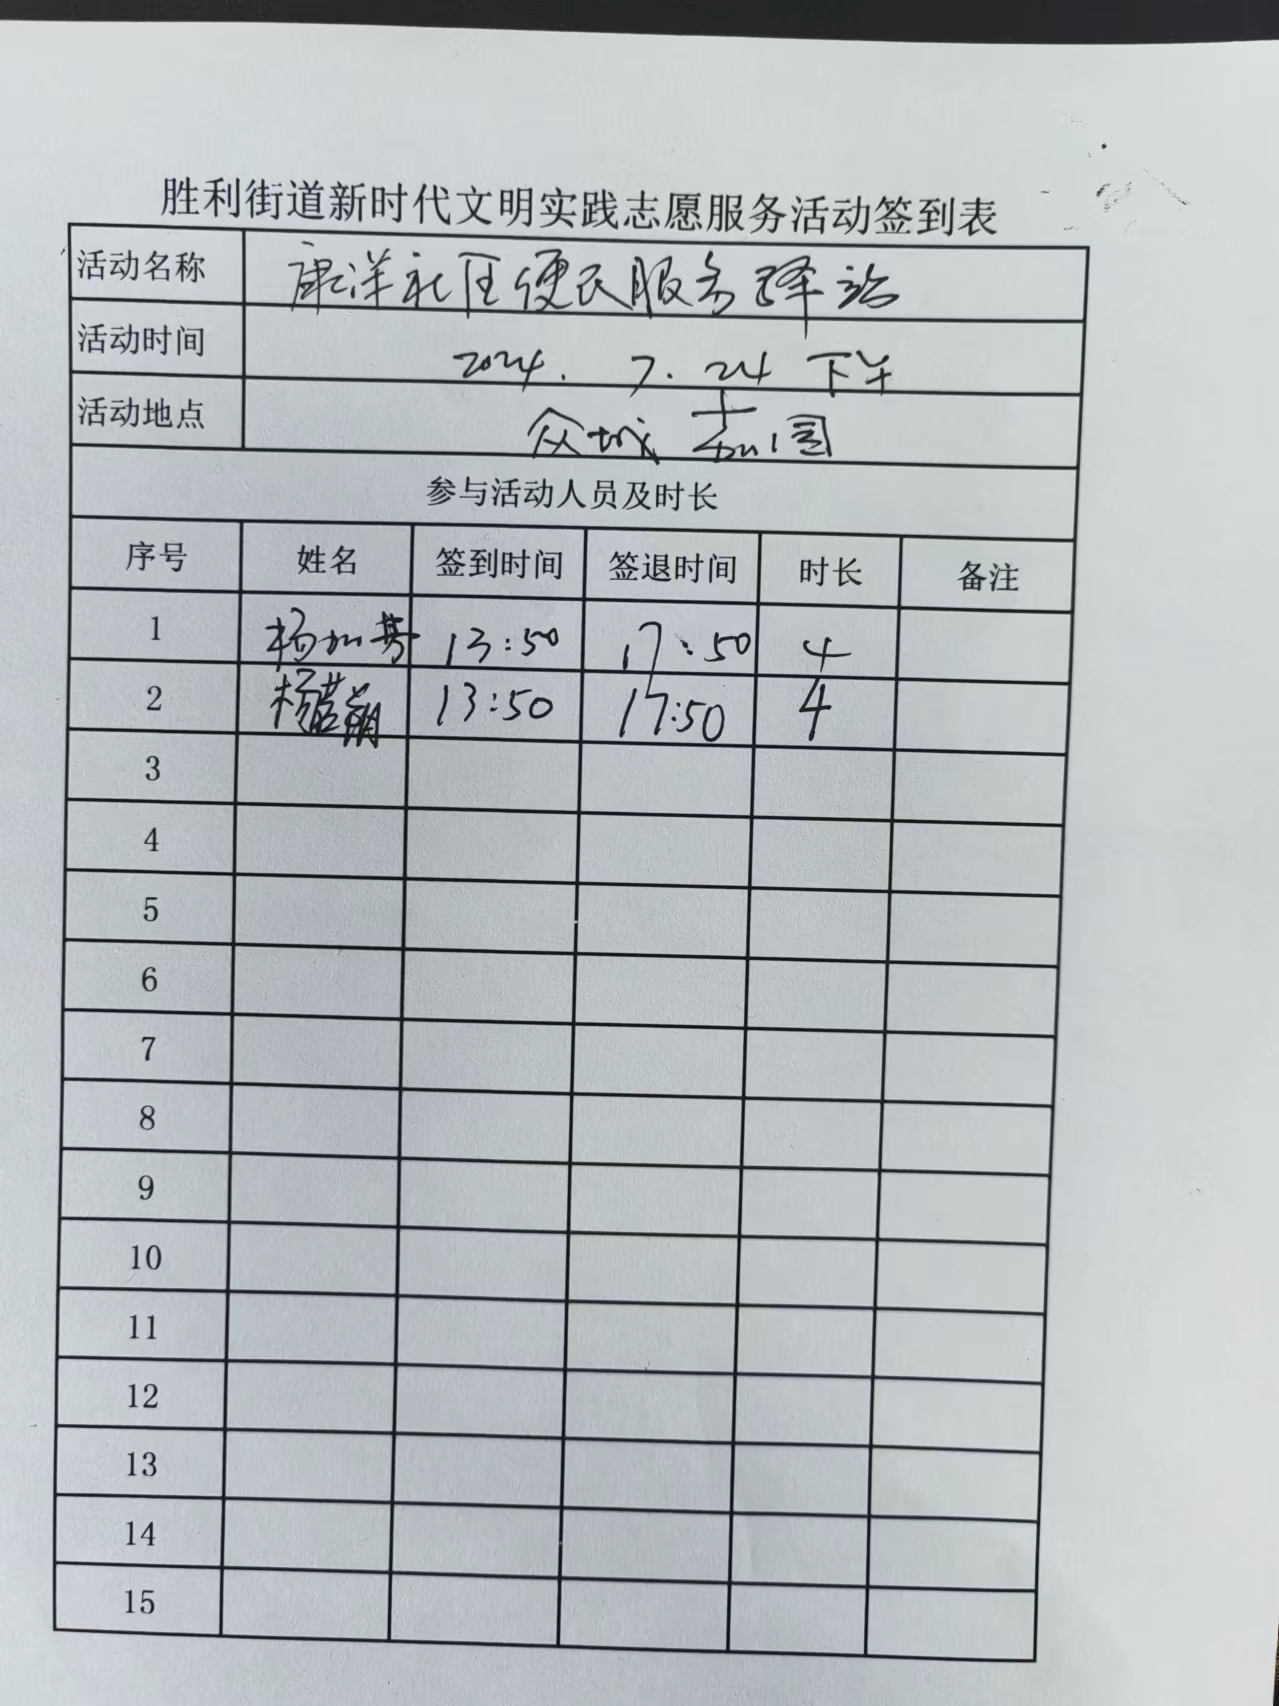 胜利街道新时代文明实践志愿服务活动签到表
活动名称 康洋社区便民服务驿站
活动时间 2024.7.24 下午
活动地点 众城嘉园
参与活动人员及时长
序号 姓名 签到时间 签退时间 时长 备注
1 杨加芳 13:50 17:50 4
2 杨 13:50 17:50 4
3
4
5
6
7
8
9
10
11
12
13
14
15